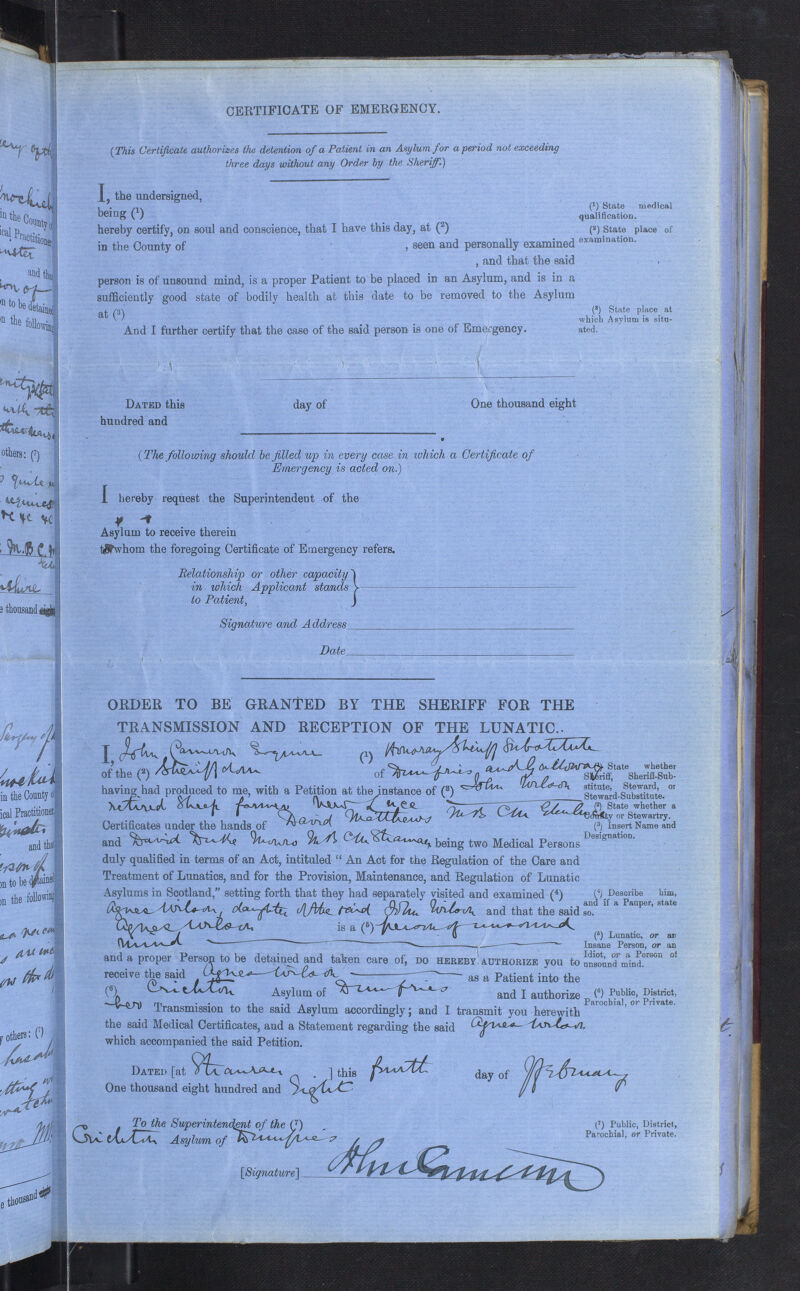 CERTIFICATE OF EMERGENCY.
(This Certificate authorizes the detention of a Patient in an Asylum for a period not exceeding
three days without any Order by the Sheriff.)
I, the undersigned,
being (1)
(1) State medical
qualification.
hereby certify, on soul and conscience, that I have this day, at (2)
(2) State place of
examination.
in the County of , seen and personally examined
, and that the said
person is of unsound mind, is a proper Patient to be placed in an Asylum, and is in a
sufficiently good state of bodily health at this date to be removed to the Asylum
at (3)
(3) State place at
which Asylum is situ-
ated.
And I further certify that the case of the said person is one of Emergency.
DATED this day of One thousand eight
hundred and
(The following should be filled up in every case in which a Certificate of
Emergency is acted on.)
I hereby request the Superintendent of the
Asylum to receive therein
to whom the foregoing Certificate of Emergency refers.
Relationship or other capacity
in which Applicant stands
to Patient,
Signature and Address
Date
ORDER TO BE GRANTED BY THE SHERIFF FOR THE
TRANSMISSION AND RECEPTION OF THE LUNATIC.
I, John Cameron Esquire (1) Honorary Sheriff Substitute
of the (2) Sheriffdom of Dumfries and Galloway
(1) State whether
Sheriff, Sheriff-Sub-
stitute, Steward, or
Steward-Substitute.
having had produced to me, with a Petition at the instance of (3) John Wilson
retired Sheep farmer New Luce
(2) State whether a
County or Stewartry.
Certificates under the hands of David Matthews M B C M Glenluce
(3) Insert Name and
Designation.
and David Duke Monro M B C M Stranraer, being two Medical Persons
duly qualified in terms of an Act, intituled " An Act for the Regulation of the Care and
Treatment of Lunatics, and for the Provision, Maintenance, and Regulation of Lunatic
Asylums in Scotland," setting forth that they had separately visited and examined (4)
(4) Describe him,
and if a Pauper, state
so.
Agnes Wilson, daughter of the said John Wilson and that the said
Agnes Wilson is a (5) person of unsound
mind
(5) Lunatic, or an
Insane Person, or an
Idiot, or a Person of
unsound mind.
and a proper Person to be detained and taken care of, DO HEREBY AUTHORIZE YOU to
receive the said Agnes Wilson as a Patient into the
(6) Crichton Asylum of Dumfries and I authorize
(6) Public, District,
Parochial, or Private.
her Transmission to the said Asylum accordingly; and I transmit you herewith
the said Medical Certificates, and a Statement regarding the said Agnes Wilson
which accompanied the said Petition.
DATED [at Stranraer ] this fourth day of February
One thousand eight hundred and
To the Superintendent of the (7)
Crichton Asylum of Dumfries
(7) Public, District,
Parochial, or Private.
[Signature] John Cameron
in the County
and tha
others: (7)
e thousand
in the County o
ical Practitioner
and tha
n the following
y others: (7)
e thousand